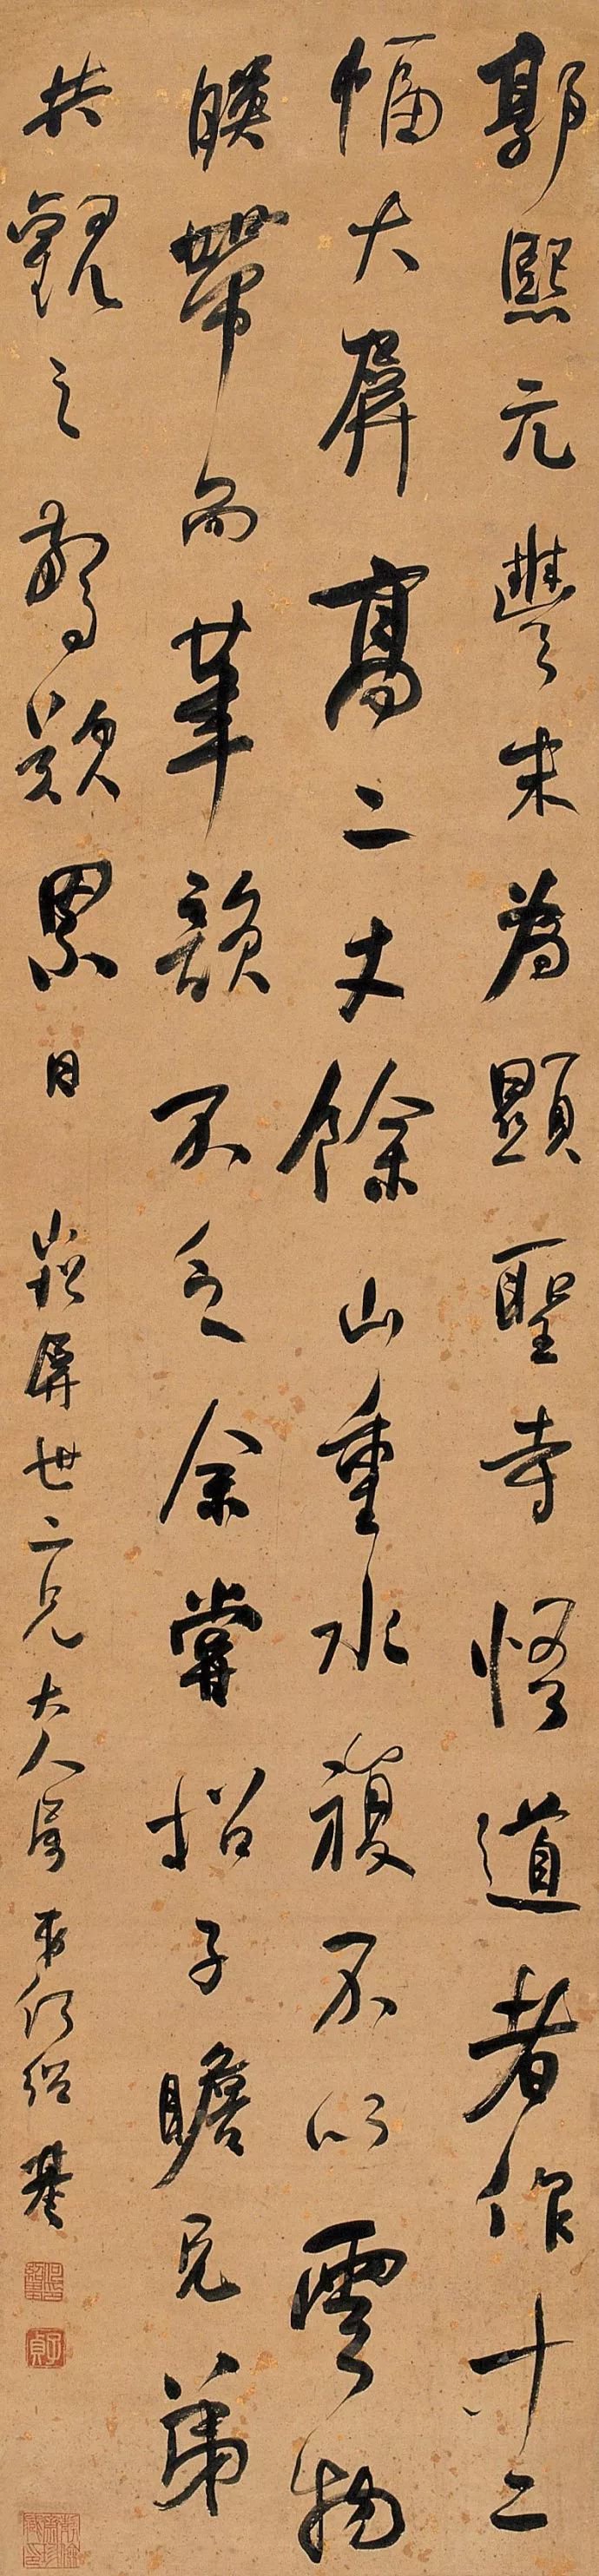 郭熙元豐末為顯聖寺悟道者作十二
幅大屏高二丈餘山重水複不以雲物
映帶而筆韻不乏余嘗招子瞻兄弟
共觀之歎息累日
屏世二兄大人屬 弟何紹基
何紹基印
子貞